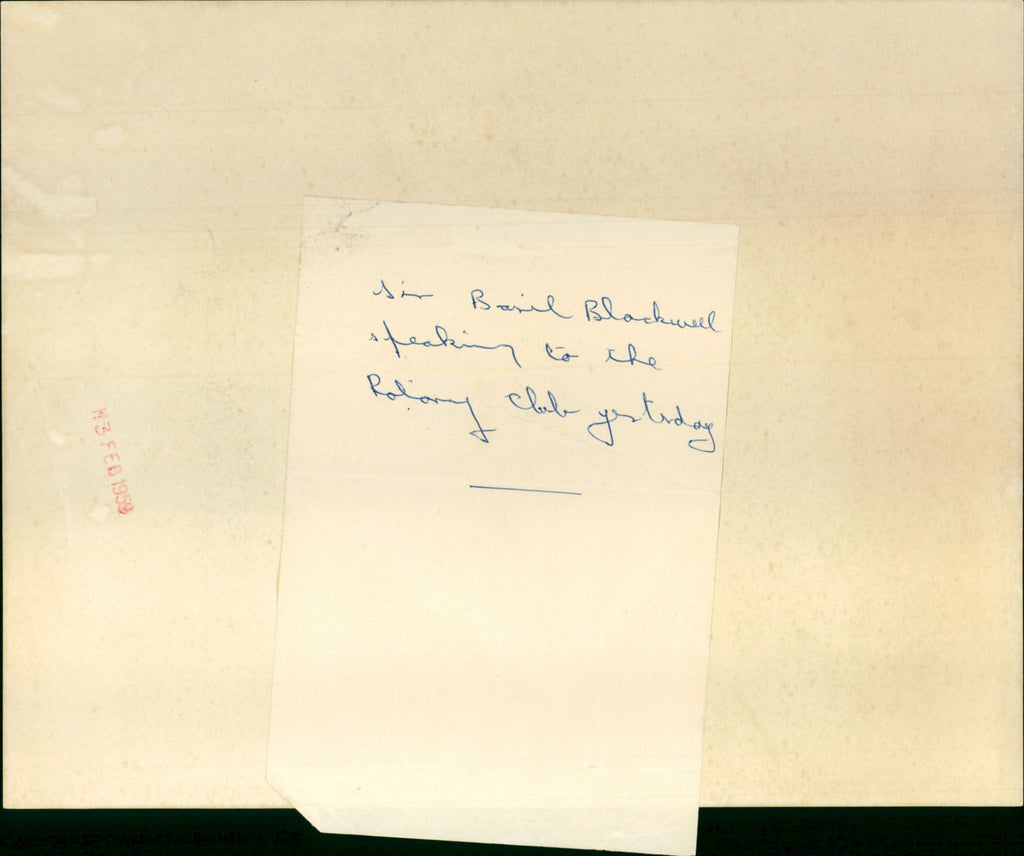 Sir Basil Blackwell
speaking to the
Rotary Club yesterday
FEB 195